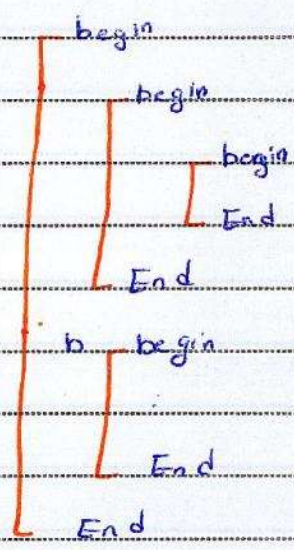 begin
begin
begin
End
End
b begin
End
End